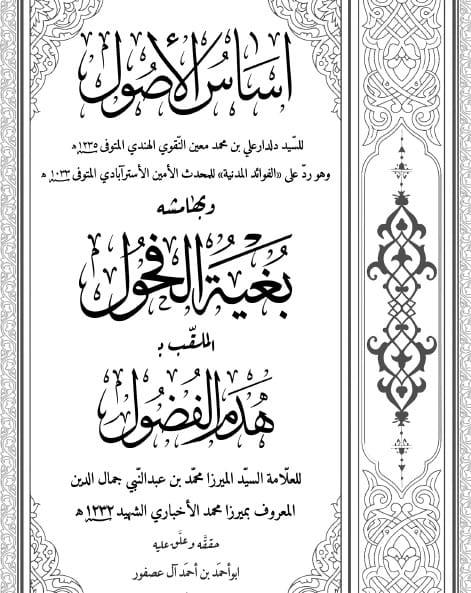 اساس الأصول
للسّيد دلدار علي بن محمد معين النّقوي الهندي المتوفى ١٢٣٥ ه
وهو ردّ على «الفوائد المدنية» للمحدث الأمين الأسترآبادي المتوفى ١٠٣٣ ه
وبهامشه
بُغية الفحول
الملقّب بـ
هدم الفُضُول
للعلّامة السيّد الميرزا محمّد بن عبدالنّبي جمال الدين
المعروف بميرزا محمد الأخباري الشهيد ١٢٣٢ ه
حققّه وعلّق عليه
ابوأحمَد بن أحمَد آل عصفور